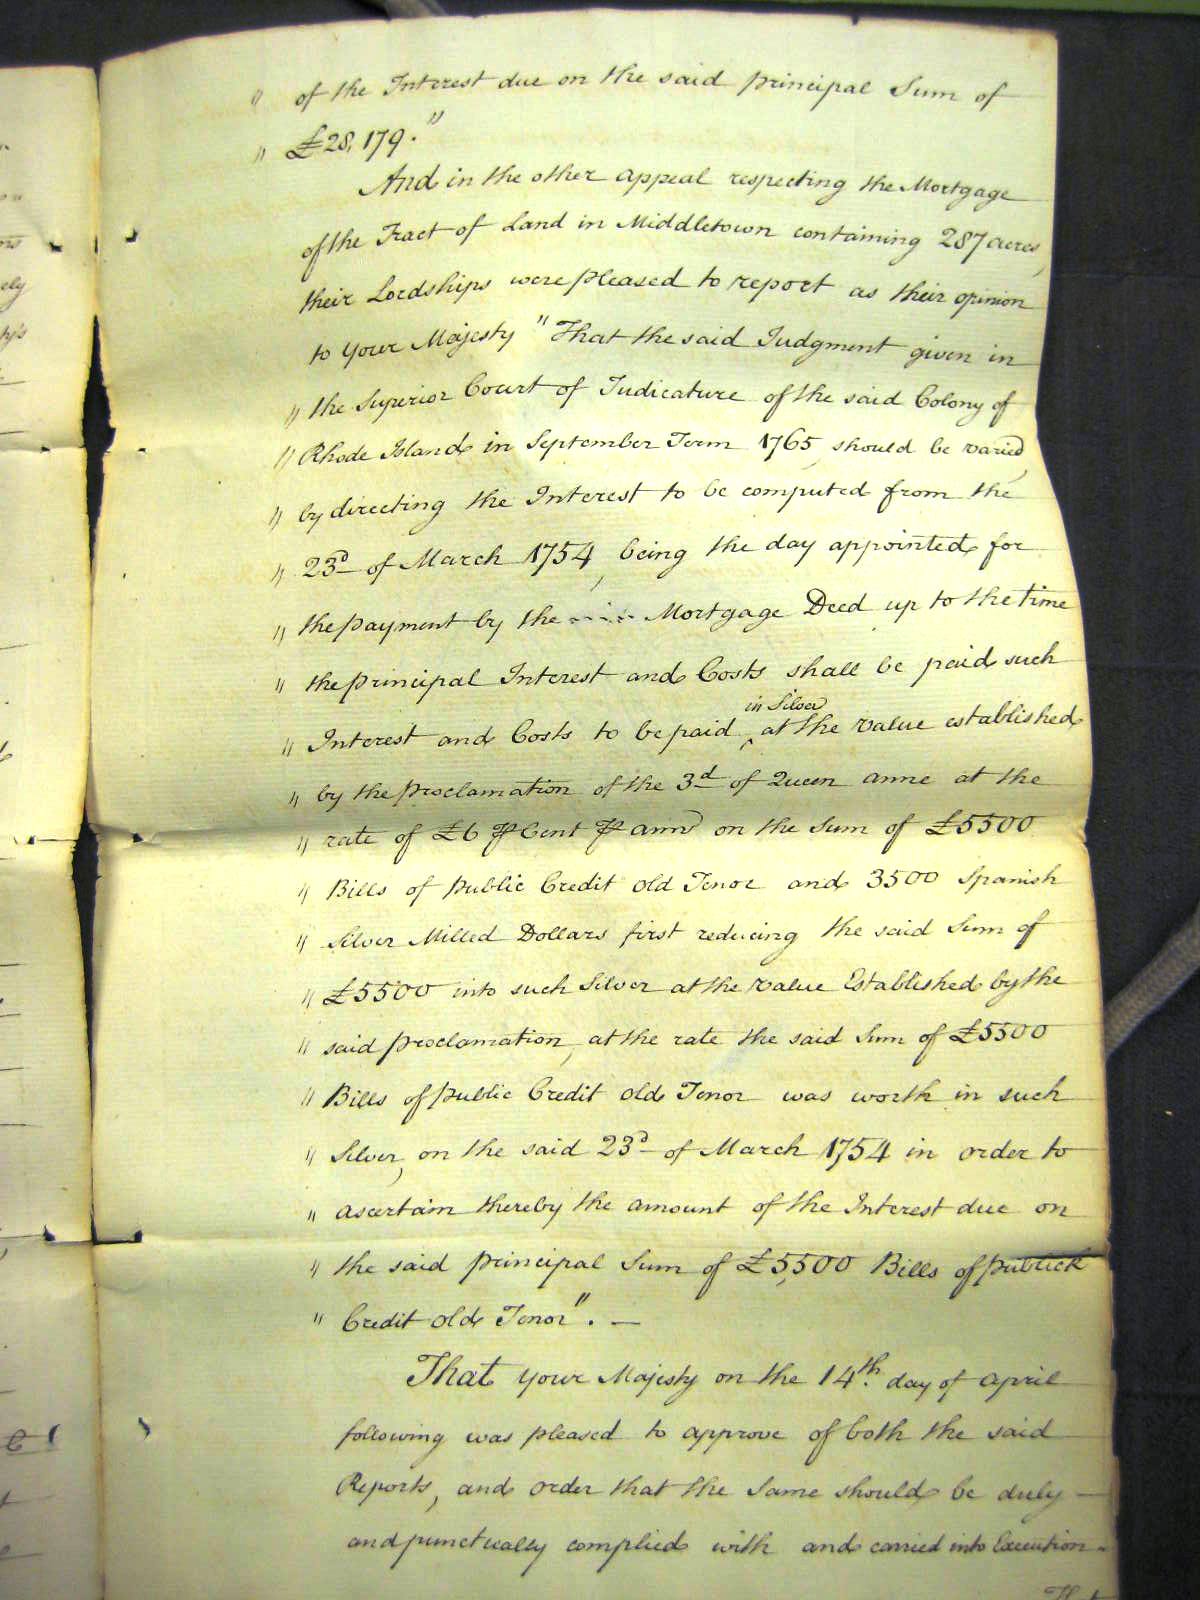 " of the Interest due on the said principal Sum of
" £28,179."
And in the other appeal respecting the Mortgage
of the Tract of Land in Middletown containing 287 acres,
their Lordships were pleased to report as their opinion
to your Majesty "That the said Judgment given in
" the Superior Court of Judicature of the said Colony of
" Rhode Island in September Term 1765, should be varied,
" by directing the Interest to be computed from the
" 23d of March 1754, being the day appointed for
" the payment by the Mortgage Deed up to the time
" the principal Interest and Costs shall be paid such
" Interest and Costs to be paid ^in Silver at the value established
" by the proclamation of the 3d of Queen anne at the
" rate of £6 ⅌ Cent ⅌ ann on the Sum of £5500
" Bills of public Credit old Tenor and 3500 Spanish
" Silver Milled Dollars first reducing the said Sum of
" £5500 into such Silver at the value Established by the
" said proclamation, at the rate the said Sum of £5500
" Bills of public Credit old Tenor was worth in such
" Silver, on the said 23d of March 1754 in order to
" ascertain thereby the amount of the Interest due on
" the said principal Sum of £5,500 Bills of publick
" Credit old Tenor". —
That your Majesty on the 14th. day of april
following was pleased to approve of both the said
Reports, and order that the Same should be duly —
and punctually complied with and carried into Execution.